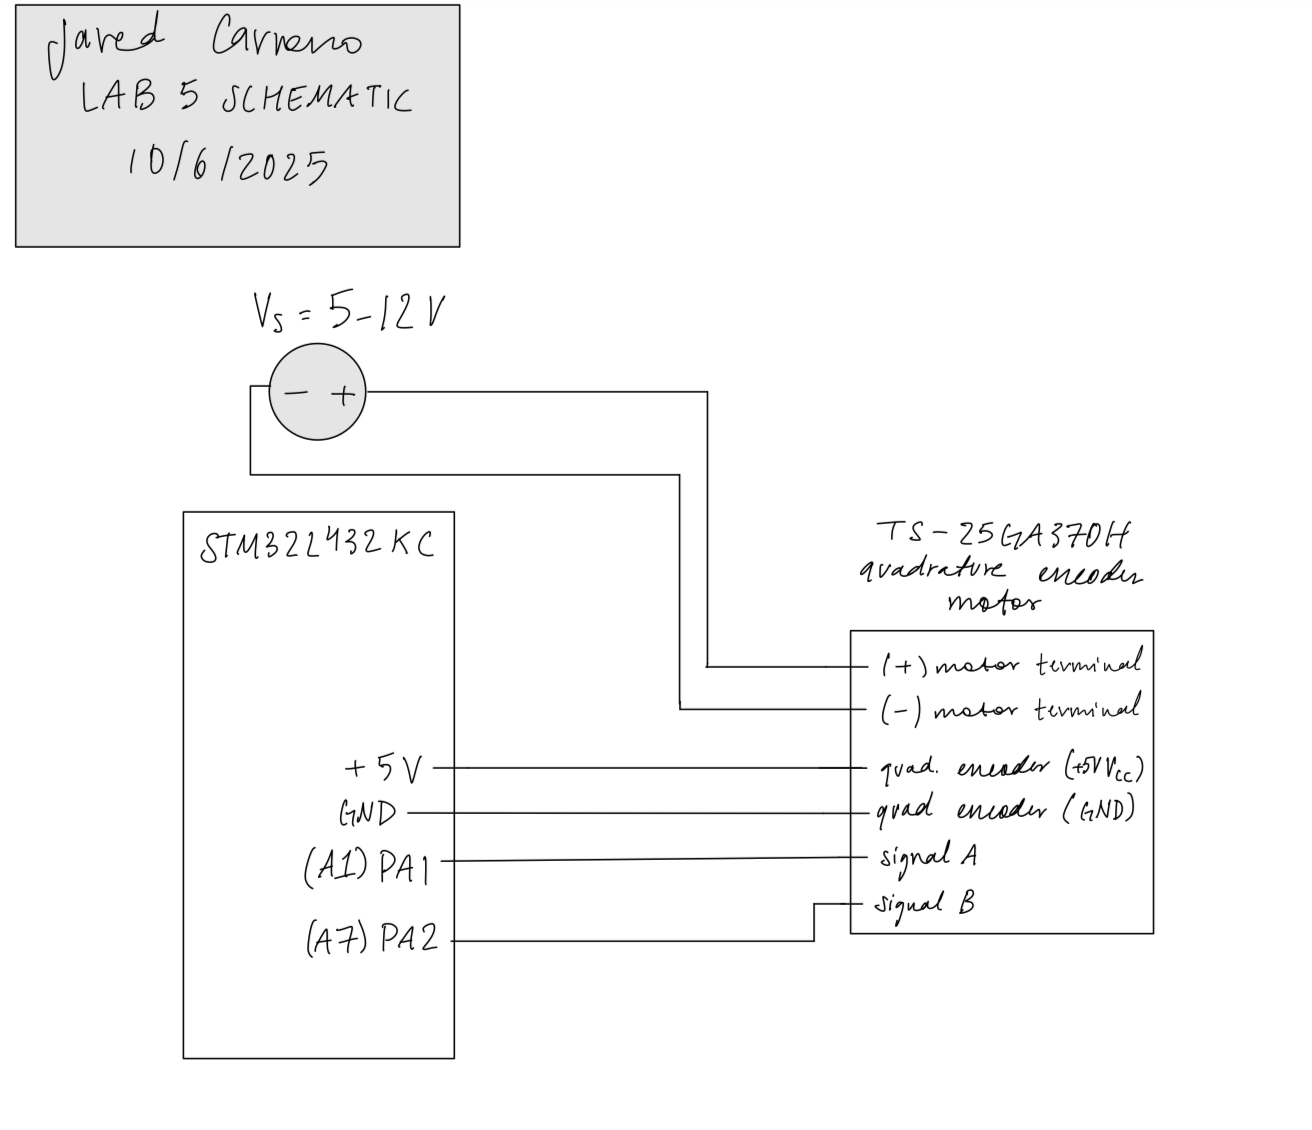 Jared Carreno
LAB 5 SCHEMATIC
10/6/2025
Vs = 5-12V
- +
STM32L432KC
+5V
GND
(A1) PA1
(A7) PA2
TS-25GA370H
quadrature encoder
motor
(+) motor terminal
(-) motor terminal
quad. encoder (+5V Vcc)
quad encoder (GND)
signal A
signal B